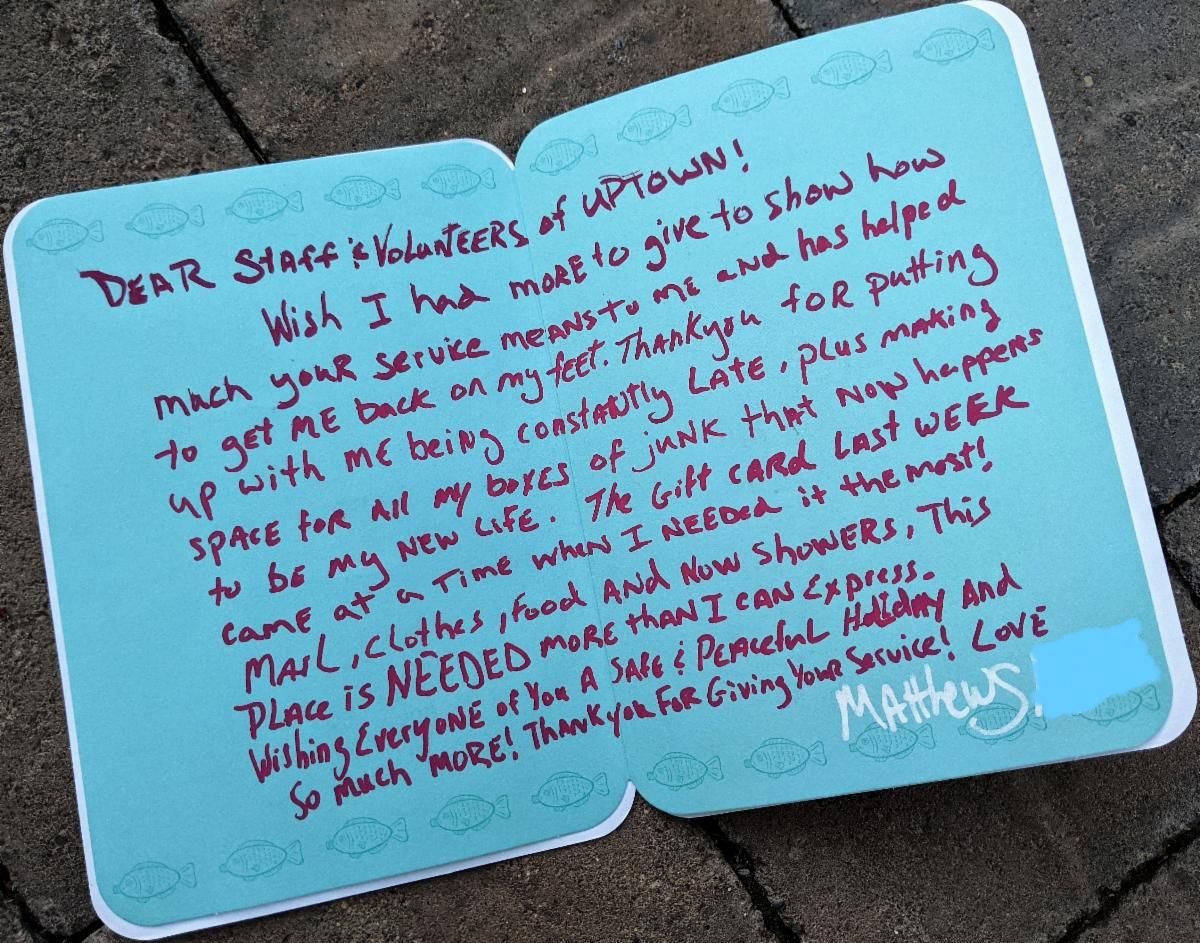 DEAR Staff & Volunteers of UPTOWN!
Wish I had more to give to show how
much your service means to me and has helped
to get me back on my feet. Thankyou for putting
up with me being constantly late, plus making
space for all my boxes of junk that now happens
to be my new life. The Gift card last week
came at a time when I needed it the most!
Mail, clothes, food and now showers, This
place is NEEDED more than I can express.
Wishing Everyone of You A Safe & Peaceful Holiday And
So much more! Thankyou For Giving Your Service! Love
Matthew S.